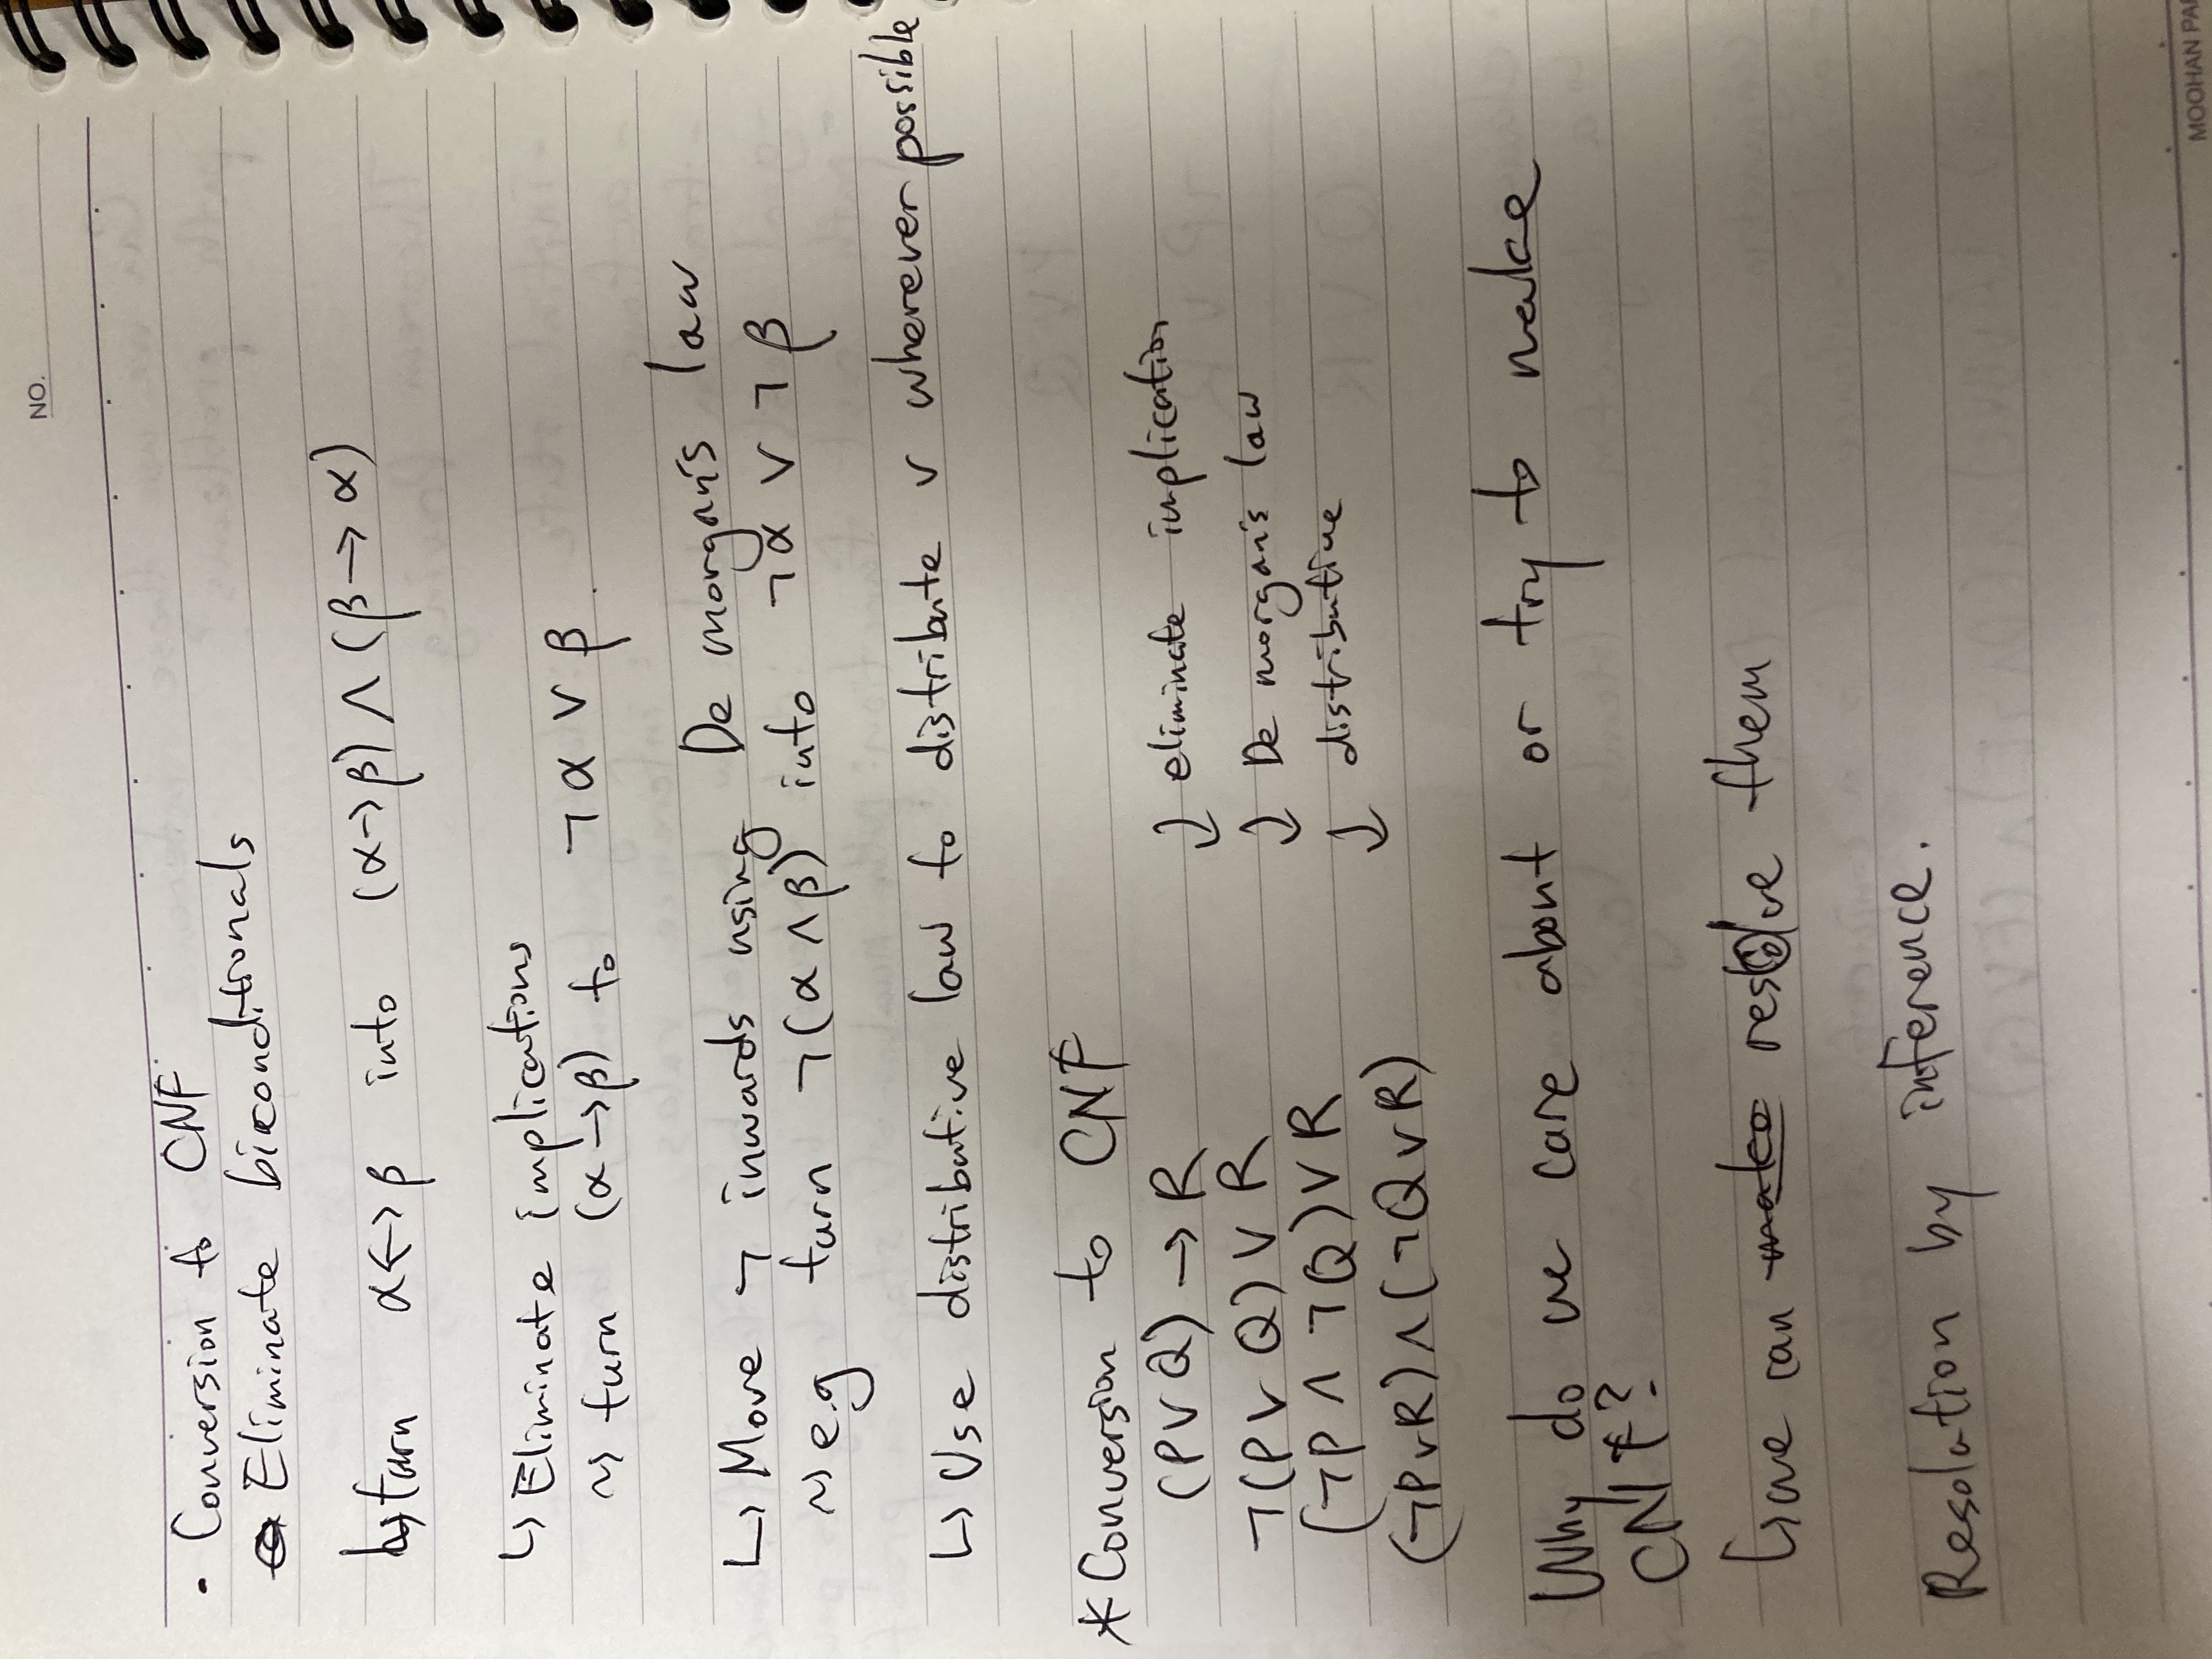 NO.
• Conversion to CNF
Eliminate biconditionals
↳ turn α↔β into (α→β) ∧ (β→α)
↳ Eliminate implications
⤳ turn (α→β) to ¬α ∨ β.
↳ Move ¬ inwards using De morgan's law
⤳ e.g turn ¬(α∧β) into ¬α ∨ ¬β
↳ Use distributive law to distribute ∨ wherever possible
* Conversion to CNF
(P∨Q) → R ↓ eliminate implication
¬(P∨Q) ∨ R ↓ De morgan's law
(¬P ∧ ¬Q) ∨ R ↓ distributive
(¬P∨R) ∧ (¬Q∨R)
Why do we care about or try to make
CNF?
↳ we can make resolve them
Resolation by inference.
MOOHAN PA